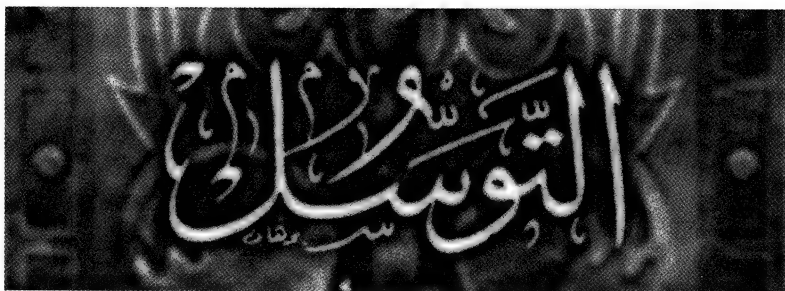 التَّوَسُّل